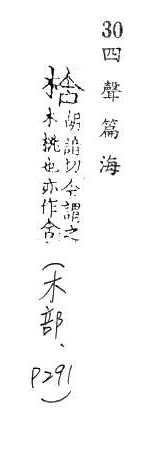 30 四聲篇海
梒 胡諳切今謂之
木桃也亦作含
(木部、P291)